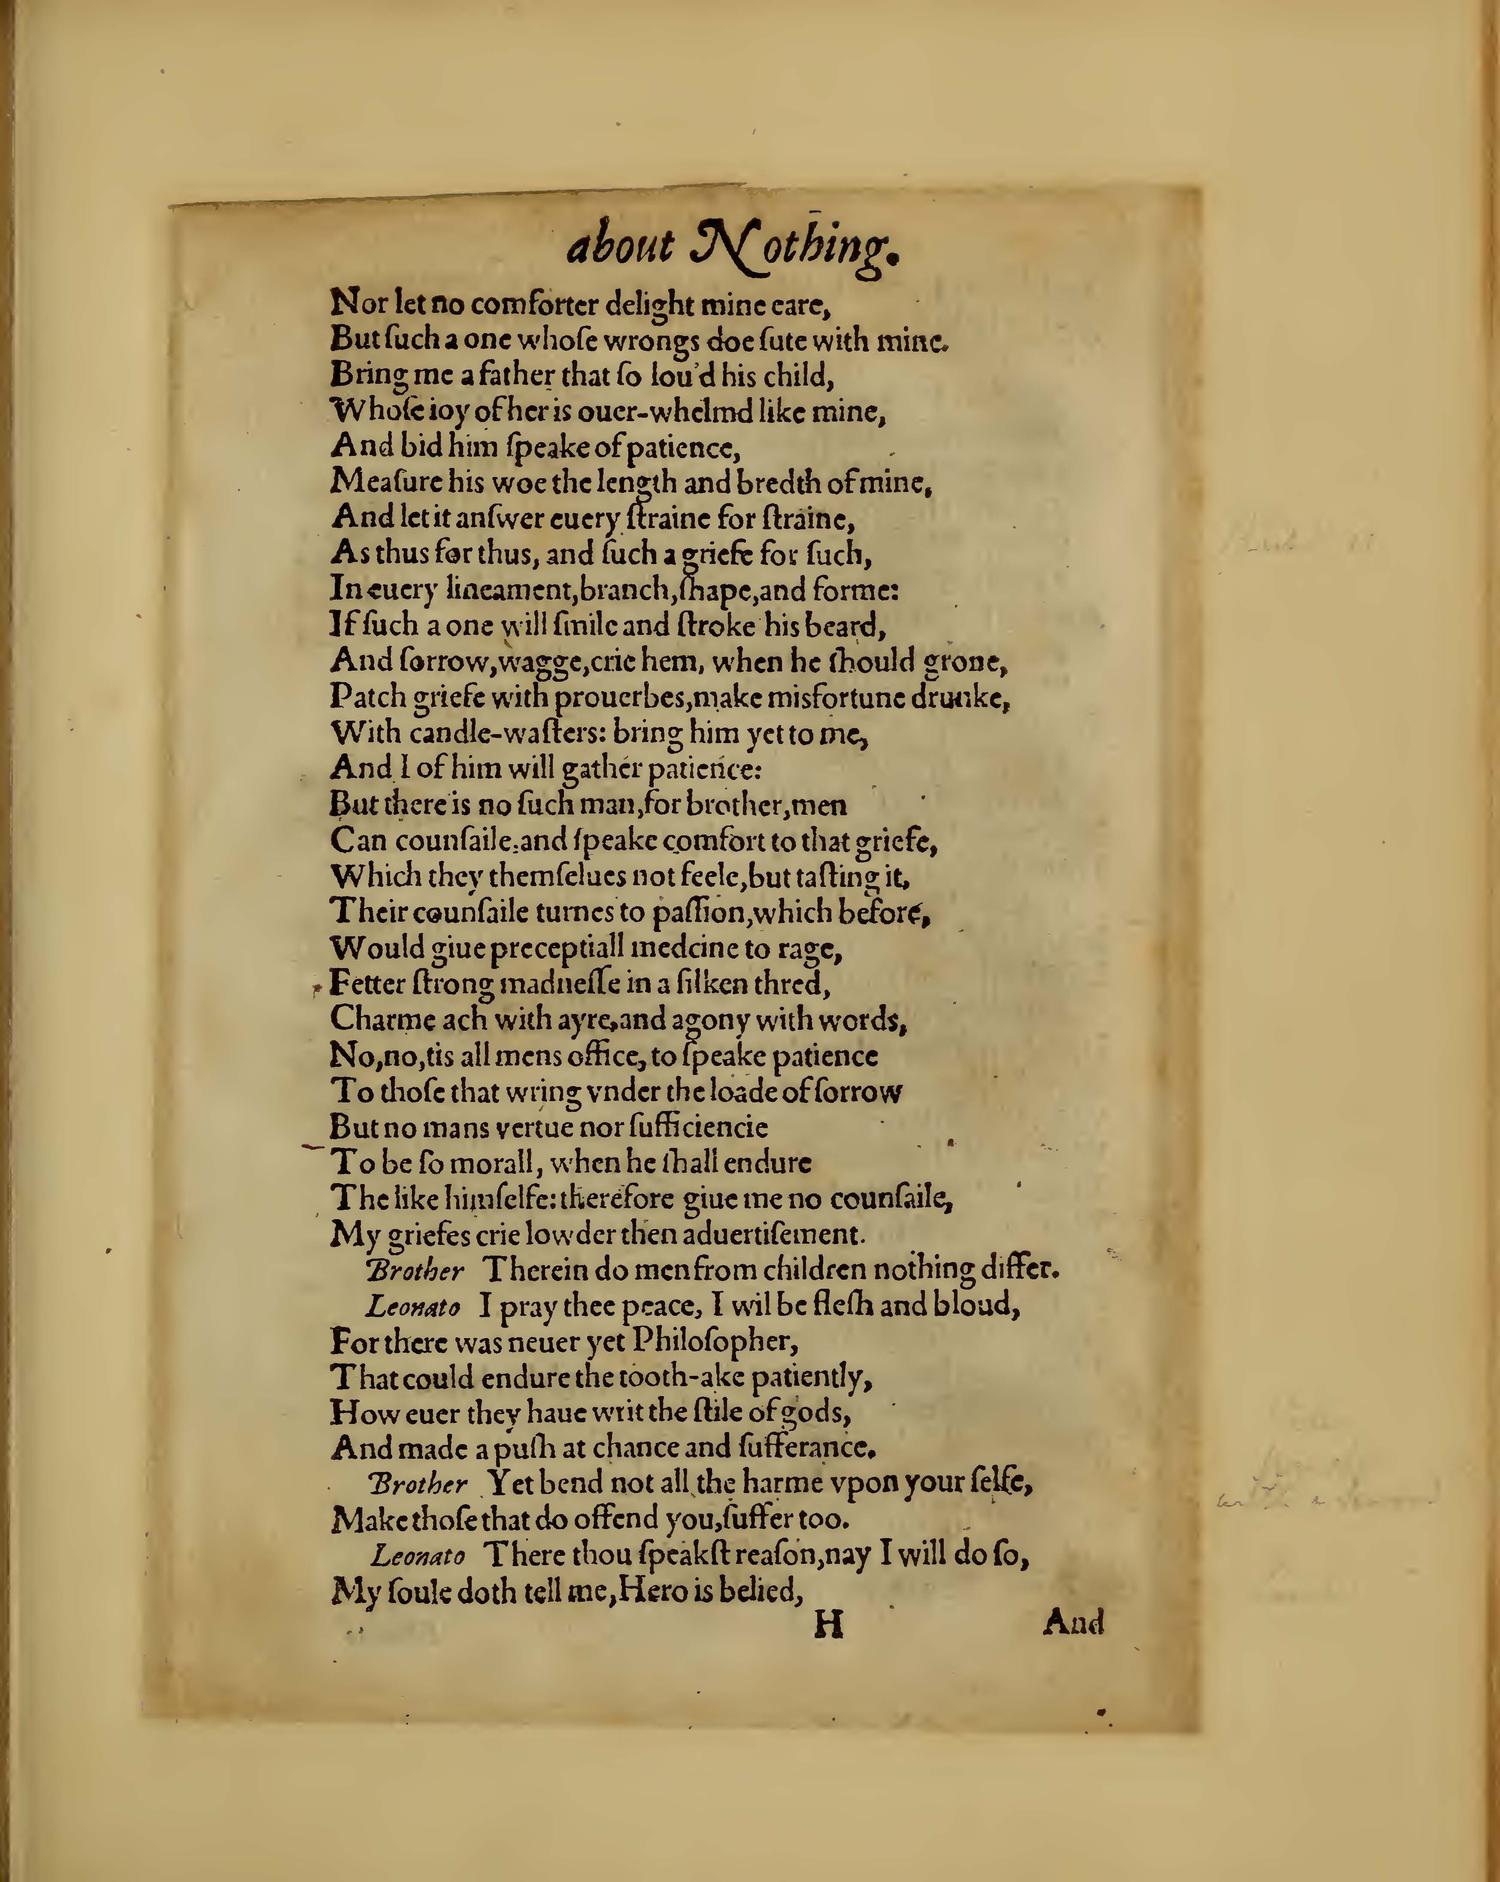 about Nothing.
Nor let no comforter delight mine eare,
But ſuch a one whoſe wrongs doe ſute with mine.
Bring me a father that ſo lou'd his child,
Whoſe ioy of her is ouer-whelmd like mine,
And bid him ſpeake of patience,
Meaſure his woe the length and bredth of mine,
And let it anſwer euery ſtraine for ſtraine,
As thus for thus, and ſuch a griefe for ſuch,
In euery lineament, branch, ſhape, and forme:
If ſuch a one will ſmile and ſtroke his beard,
And ſorrow, wagge, crie hem, when he ſhould grone,
Patch griefe with prouerbes, make misfortune drunke,
With candle-waſters: bring him yet to me,
And I of him will gather patience:
But there is no ſuch man, for brother, men
Can counſaile, and ſpeake comfort to that griefe,
Which they themſelues not feele, but taſting it,
Their counſaile turnes to paſſion, which before,
Would giue preceptiall medcine to rage,
Fetter ſtrong madneſſe in a ſilken thred,
Charme ach with ayre, and agony with words,
No, no, tis all mens office, to ſpeake patience
To thoſe that wring vnder the loade of ſorrow
But no mans vertue nor ſufficiencie
To be ſo morall, when he ſhall endure
The like himſelfe: therefore giue me no counſaile,
My griefes crie lowder then aduertiſement.
Brother Therein do men from children nothing differ.
Leonato I pray thee peace, I wil be fleſh and bloud,
For there was neuer yet Philoſopher,
That could endure the tooth-ake patiently,
How euer they haue writ the ſtile of gods,
And made a puſh at chance and ſufferance.
Brother Yet bend not all the harme vpon your ſelfe,
Make thoſe that do offend you, ſuffer too.
Leonato There thou ſpeakſt reaſon, nay I will do ſo,
My ſoule doth tell me, Hero is belied,
H And